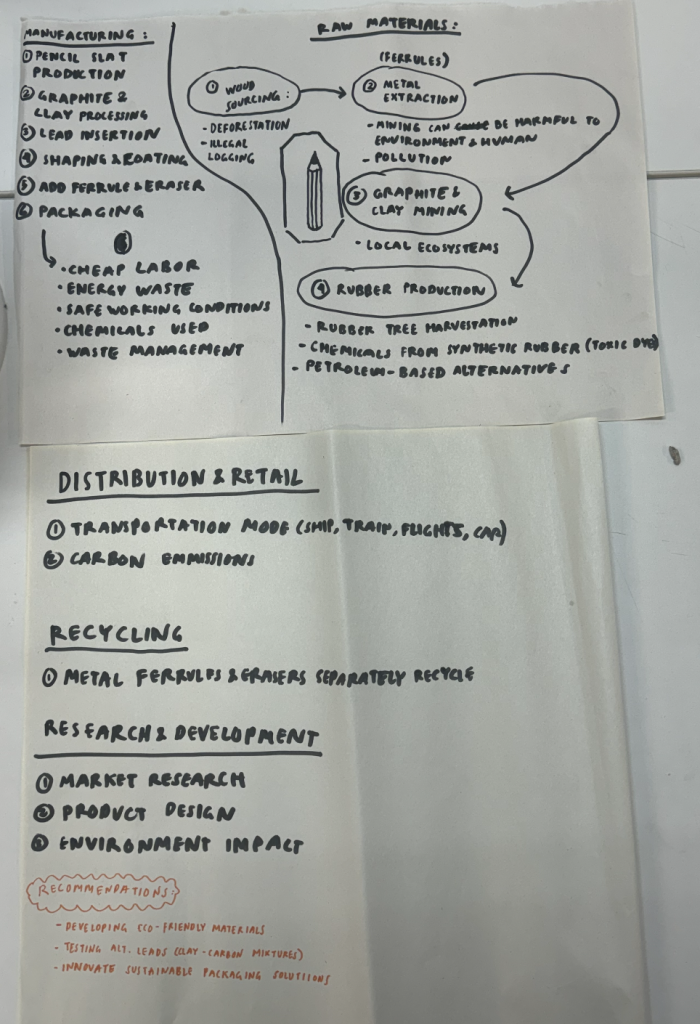 MANUFACTURING :
① PENCIL SLAT
PRODUCTION
② GRAPHITE &
CLAY PROCESSING
③ LEAD INSERTION
④ SHAPING & COATING
⑤ ADD FERRULE & ERASER
⑥ PACKAGING
• CHEAP LABOR
• ENERGY WASTE
• SAFE WORKING CONDITIONS
• CHEMICALS USED
• WASTE MANAGEMENT
RAW MATERIALS :
① WOOD
SOURCING :
- DEFORESTATION
- ILLEGAL
LOGGING
(FERRULES)
② METAL
EXTRACTION
- MINING CAN BE HARMFUL TO
ENVIRONMENT & HUMAN
- POLLUTION
③ GRAPHITE &
CLAY MINING
- LOCAL ECOSYSTEMS
④ RUBBER PRODUCTION
- RUBBER TREE HARVESTATION
- CHEMICALS FROM SYNTHETIC RUBBER (TOXIC DYE)
- PETROLEUM-BASED ALTERNATIVES
DISTRIBUTION & RETAIL
① TRANSPORTATION MODE (SHIP, TRAIN, FLIGHTS, CAR)
② CARBON EMMISSIONS
RECYCLING
① METAL FERRULES & ERASERS SEPARATELY RECYCLE
RESEARCH & DEVELOPMENT
① MARKET RESEARCH
② PRODUCT DESIGN
③ ENVIRONMENT IMPACT
RECOMMENDATIONS:
- DEVELOPING ECO-FRIENDLY MATERIALS
- TESTING ALT. LEADS (CLAY-CARBON MIXTURES)
- INNOVATE SUSTAINABLE PACKAGING SOLUTIIONS